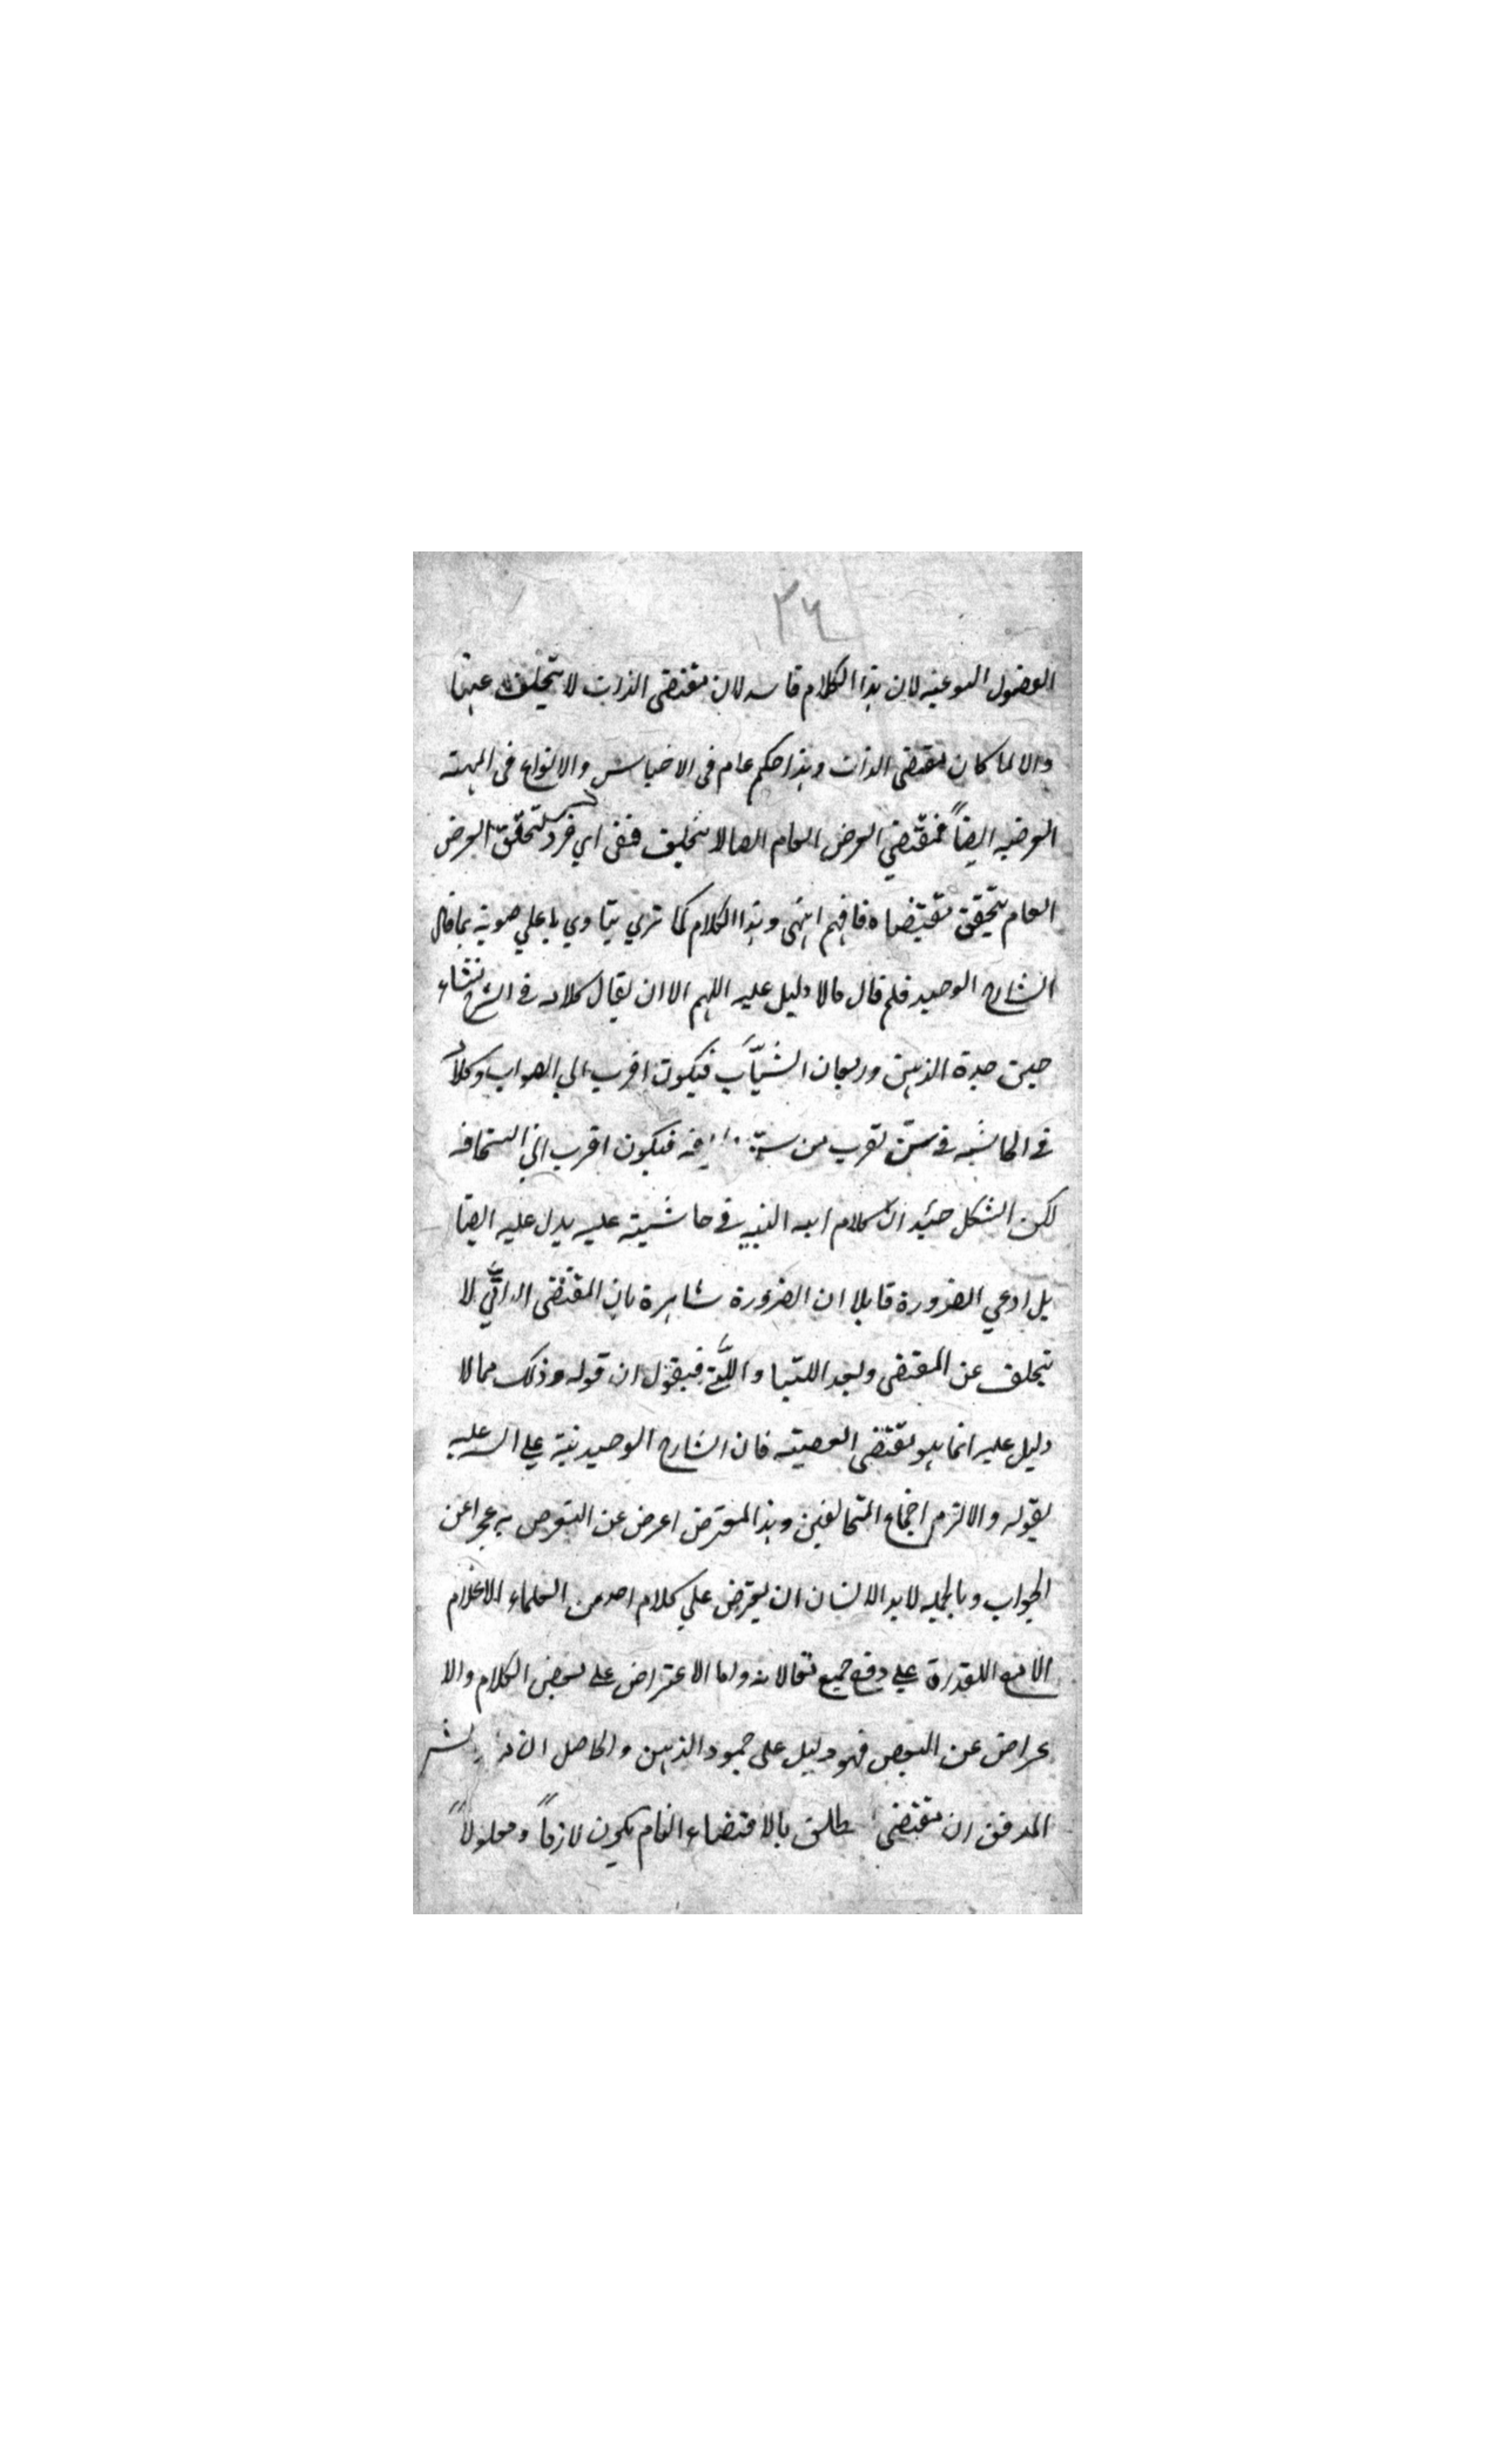 ٣٤
الفصول النوعيه لان هذا الكلام فاسد لان مقتضى الذات لا يتخلف عنها
والا لما كان مقتضى الذات وهذا حكم عام فى الاجناس والانواع فى المهية
العرضيه ايضاً فمقتضي العرض العام ايضا لا يتخلف ففى اي فرد يتحقق العرض
العام يتحقق مقتضاه فافهم انتهى وهذا الكلام كما تري ينادي باعلي صوته بما قال
الشارح الوحيد فلم قال مالا دليل عليه اللهم الا ان يقال كلامه في الشرح نشاء
حين حدة الذهن وريعان الشباب فيكون اقرب الي الصواب وكلامه
في الحاشيه في سن تقرب من فيكون اقرب الي السخافه
لكن المشكل حينئذ ان كلام ابنه النبيه في حاشيته عليه يدل عليه ايضا
بل ادعي الضرورة قايلا ان الضرورة شاهرة بان المقتضى الذاتي لا
يتخلف عن المقتضى وبعد اللتيا والتي فيقول ان قوله وذلك مما لا
دليل عليه انما هو مقتضى العصبية فان الشارح الوحيد نبه علي الدليل عليه
بقوله والا لزم اجتماع المتخالفين وهذا المعترض اعرض عن التعرض به عجرا عن
الجواب وبالجمله لابد الانسان ان يعترض علي كلام احد من العلماء الاعلام
الا مع القدرة علي دفع جميع مقالاته واما الاعتراض على بعض الكلام والا
عراض عن البعض فهو دليل على جمود الذهن والحاصل ان
المدقق ان مقتضى المطلق بالاقتضاء التام يكون لازماً ومعلولاً